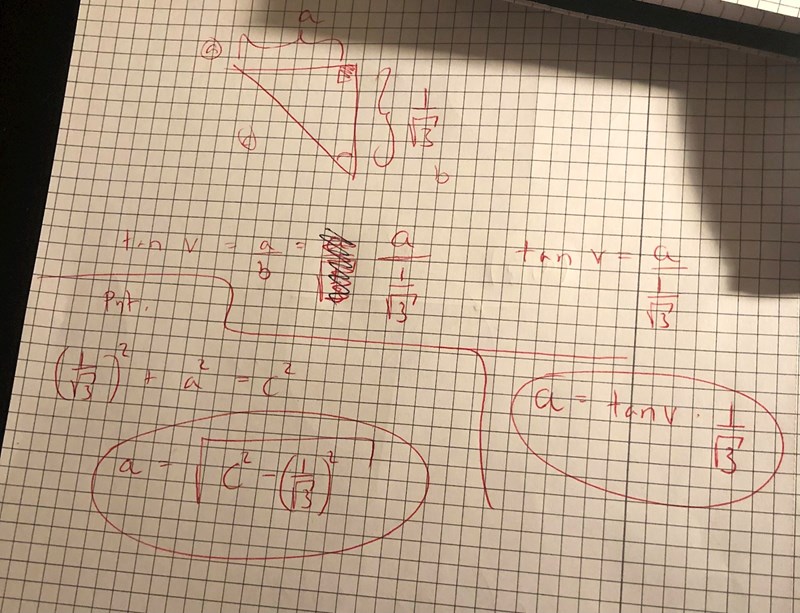 a
a
c
1/√3
b
tan v = a/b = a/(1/√3)
tan v = a/(1/√3)
(1/√3)² + a² = c²
a = √(c² - (1/√3)²)
a = tan v · 1/√3